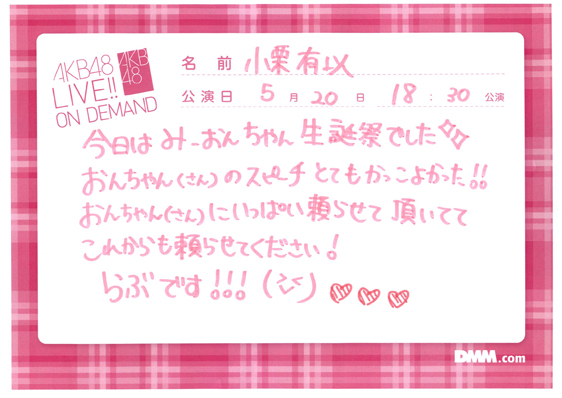 AKB48
LIVE!!
ON DEMAND
AKB
48
名前 小栗有以
公演日 5月20日 18:30公演
今日はみーおんちゃん生誕祭でした
おんちゃん(さん)のスピーチとてもかっこよかった!!
おんちゃん(さん)にいっぱい頼らせて頂いてて
これからも頼らせてください!
らぶです!!!
DMM.com